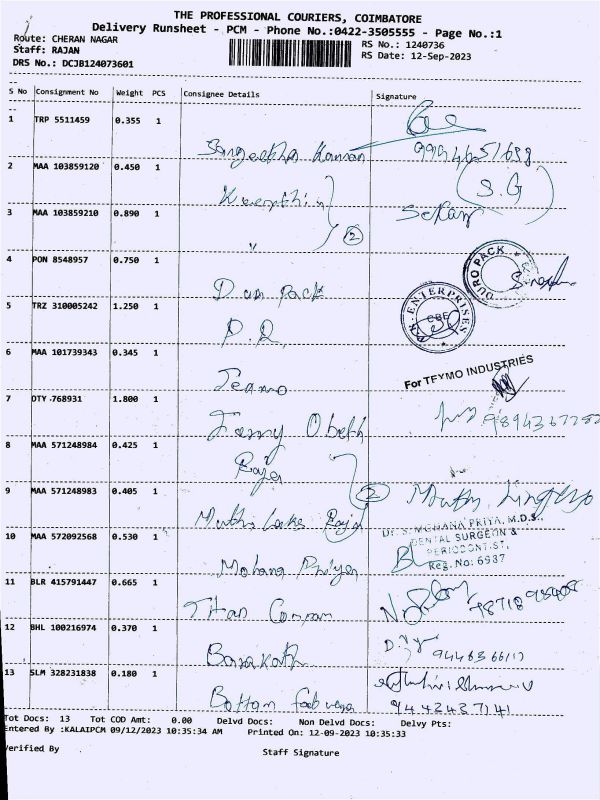 THE PROFESSIONAL COURIERS, COIMBATORE
Delivery Runsheet - PCM - Phone No.:0422-3505555 - Page No.:1
Route: CHERAN NAGAR
RS No.: 1240736
Staff: RAJAN
RS Date: 12-Sep-2023
DRS No.: DCJB124073601
S No Consignment No Weight PCS Consignee Details Signature
1 TRP 5511459 0.355 1
Sangeetha Kannan
2 MAA 103859120 0.450 1
(S.G)
3 MAA 103859210 0.890 1
Sekar
" (2)
4 PON 8548957 0.750 1
DURO PACK
5 TRZ 310005242 1.250 1
P.K. ENTERPRISES
CBE
6 MAA 101739343 0.345 1
For TEYMO INDUSTRIES
Teamo
7 OTY 768931 1.800 1
8 MAA 571248984 0.425 1
Raja
9 MAA 571248983 0.405 1
(2)
10 MAA 572092568 0.530 1
Dr. S. MOHANA PRIYA, M.D.S.,
DENTAL SURGEON &
PERIODONTIST,
Reg. No: 6987
Mohana Priya
11 BLR 415791447 0.665 1
Titan Company
12 BHL 100216974 0.370 1
Barakath
13 SLM 328231838 0.180 1
9442437141
Tot Docs: 13 Tot COD Amt: 0.00 Delvd Docs: Non Delvd Docs: Delvy Pts:
Entered By :KALAIPCM 09/12/2023 10:35:34 AM Printed On: 12-09-2023 10:35:33
Verified By Staff Signature